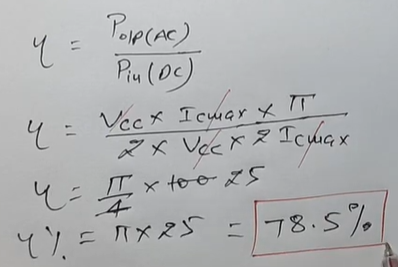 η = Po/p(AC) / Pin(DC)
η = Vcc x Icmax x π / 2 x Vcc x 2 Icmax
η = π/4 x 100 25
η% = π x 25 = 78.5%